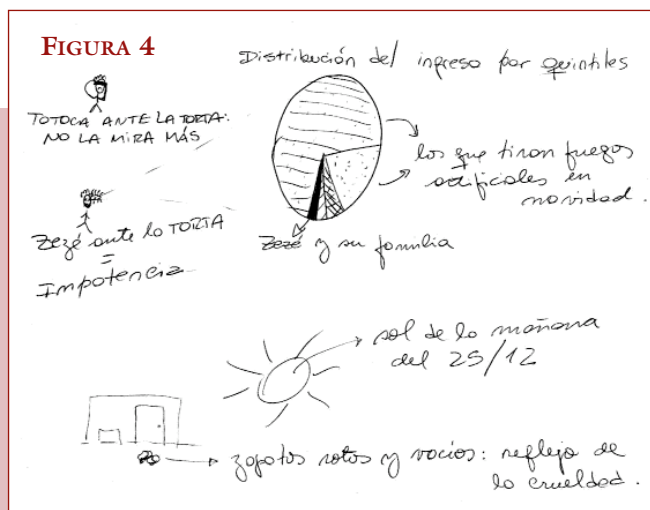 FIGURA 4
Distribución del ingreso por quintiles
TOTOCA ANTE LA TORTA:
NO LA MIRA MÁS
los que tiran fuegos
artificiales en
navidad.
Zezé ante la TORTA
=
Impotencia
Zezé y su familia
sol de la mañana
del 25/12
zapatos rotos y vacíos: reflejo de
la crueldad.